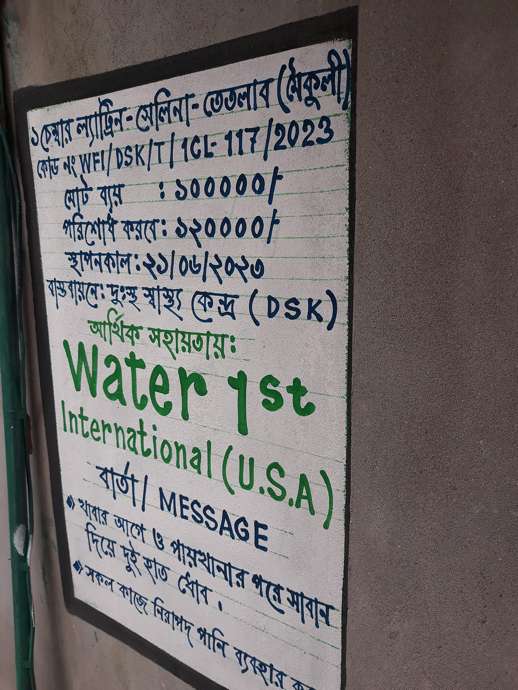 ১ চেম্বার ল্যাট্রিন-সেলিনা-তেতলাব (মৈকুলী)
কোড নং WFI/DSK/T/1CL-117/2023
মোট ব্যয় : ১০০০০০/
পরিশোধ করবে: ১২০০০০/
স্থাপনকাল: ২১/০৬/২০২৩
বাস্তবায়নে: দুঃস্থ স্বাস্থ্য কেন্দ্র (DSK)
আর্থিক সহায়তায়:
Water 1st
International (U.S.A)
বার্তা/ MESSAGE
খাবার আগে ও পায়খানার পরে সাবান
দিয়ে দুই হাত ধোব ।
সকল কাজে নিরাপদ পানি ব্যবহার